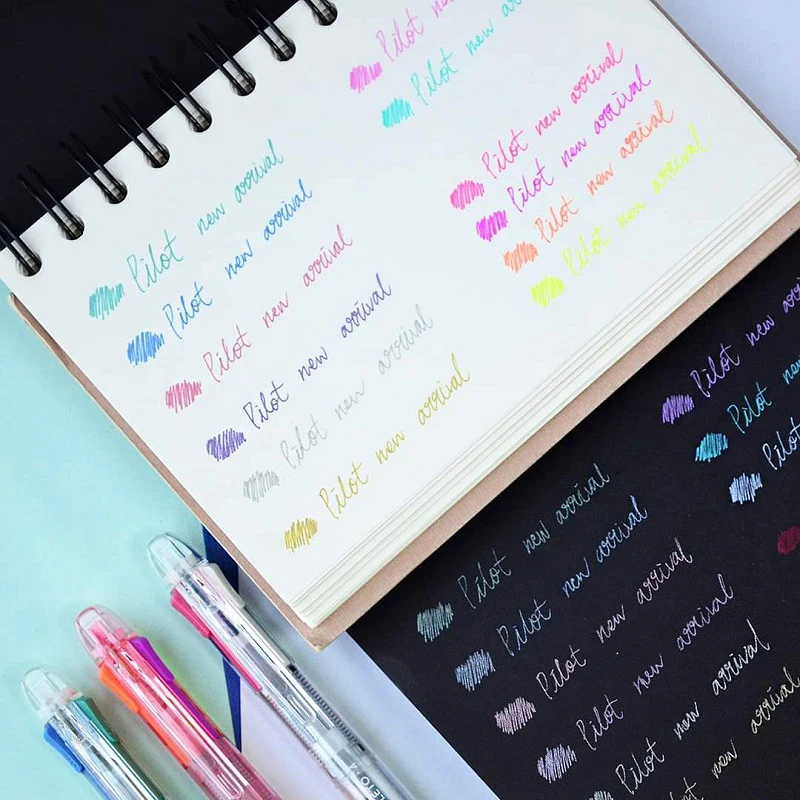 Pilot new
Pilot new
Pilot new arrival
Pilot new arrival
Pilot new arrival
Pilot new arrival
Pilot new arrival
Pilot new arrival
Pilot new arrival
Pilot new arrival
Pilot new arrival
Pilot new arrival
Pilot new
Pilot new
Pilot
Pilot new arrival
Pilot new arrival
Pilot new arrival
Pilot new arrival
Pilot new arrival
new arrival